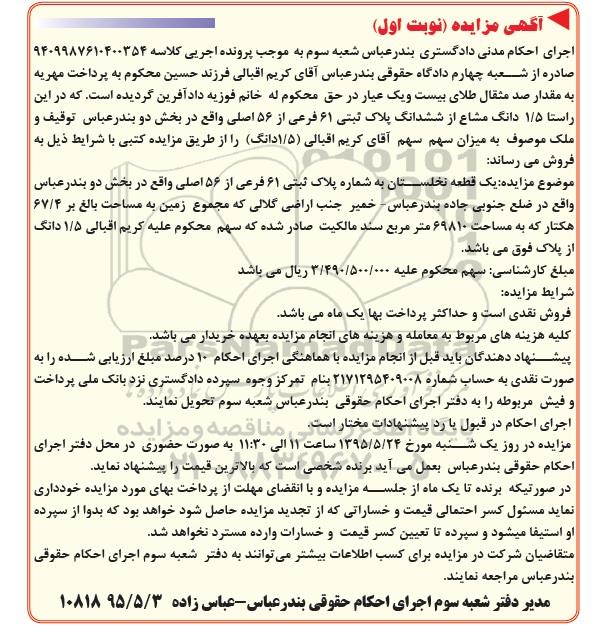 آگهی مزایده (نوبت اول)
اجرای احکام مدنی دادگستری بندرعباس شعبه سوم به موجب پرونده اجریی کلاسه ۹۴۰۹۹۸۷۶۱۰۴۰۰۳۵۴
صادره از شعبه چهارم دادگاه حقوقی بندرعباس آقای کریم اقبالی فرزند حسین محکوم به پرداخت مهریه
به مقدار صد مثقال طلای بیست ویک عیار در حق محکوم له خانم فوزیه دادآفرین گردیده است. که در این
راستا ۱/۵ دانگ مشاع از ششدانگ پلاک ثبتی ۶۱ فرعی از ۵۶ اصلی واقع در بخش دو بندرعباس توقیف و
ملک موصوف به میزان سهم سهم آقای کریم اقبالی (۱/۵دانگ) را از طریق مزایده کتبی با شرایط ذیل به
فروش می رساند:
موضوع مزایده:یک قطعه نخلستان به شماره پلاک ثبتی ۶۱ فرعی از ۵۶ اصلی واقع در بخش دو بندرعباس
واقع در ضلع جنوبی جاده بندرعباس- خمیر جنب اراضی گلالی که مجموع زمین به مساحت بالغ بر ۶۷/۴
هکتار که به مساحت ۶۹۸۱۰ متر مربع سند مالکیت صادر شده که سهم محکوم علیه کریم اقبالی ۱/۵ دانگ
از پلاک فوق می باشد.
مبلغ کارشناسی: سهم محکوم علیه ۳/۴۹۰/۵۰۰/۰۰۰ ریال می باشد
شرایط مزایده:
فروش نقدی است و حداکثر پرداخت بها یک ماه می باشد.
کلیه هزینه های مربوط به معامله و هزینه های انجام مزایده بعهده خریدار می باشد.
پیشنهاد دهندگان باید قبل از انجام مزایده با هماهنگی اجرای احکام ۱۰ درصد مبلغ ارزیابی شده را به
صورت نقدی به حساب شماره ۲۱۷۱۲۹۵۴۰۹۰۰۸ بنام تمرکز وجوه سپرده دادگستری نزد بانک ملی پرداخت
و فیش مربوطه را به دفتر اجرای احکام حقوقی بندرعباس شعبه سوم تحویل نمایند.
اجرای احکام در قبول یا رد پیشنهادات مختار است.
مزایده در روز یک شنبه مورخ ۱۳۹۵/۵/۲۴ ساعت ۱۱ الی ۱۱:۳۰ به صورت حضوری در محل دفتر اجرای
احکام حقوقی بندرعباس بعمل می آید برنده شخصی است که بالاترین قیمت را پیشنهاد نماید.
در صورتیکه برنده تا یک ماه از جلسه مزایده و با انقضای مهلت از پرداخت بهای مورد مزایده خودداری
نماید مسئول کسر احتمالی قیمت و خساراتی که از تجدید مزایده حاصل شود خواهد بود که بدوا از سپرده
او استیفا میشود و سپرده تا تعیین کسر قیمت و خسارات وارده مسترد نخواهد شد.
متقاضیان شرکت در مزایده برای کسب اطلاعات بیشتر می‌توانند به دفتر شعبه سوم اجرای احکام حقوقی
بندرعباس مراجعه نمایند.
مدیر دفتر شعبه سوم اجرای احکام حقوقی بندرعباس-عباس زاده ۹۵/۵/۳ ۱۰۸۱۸